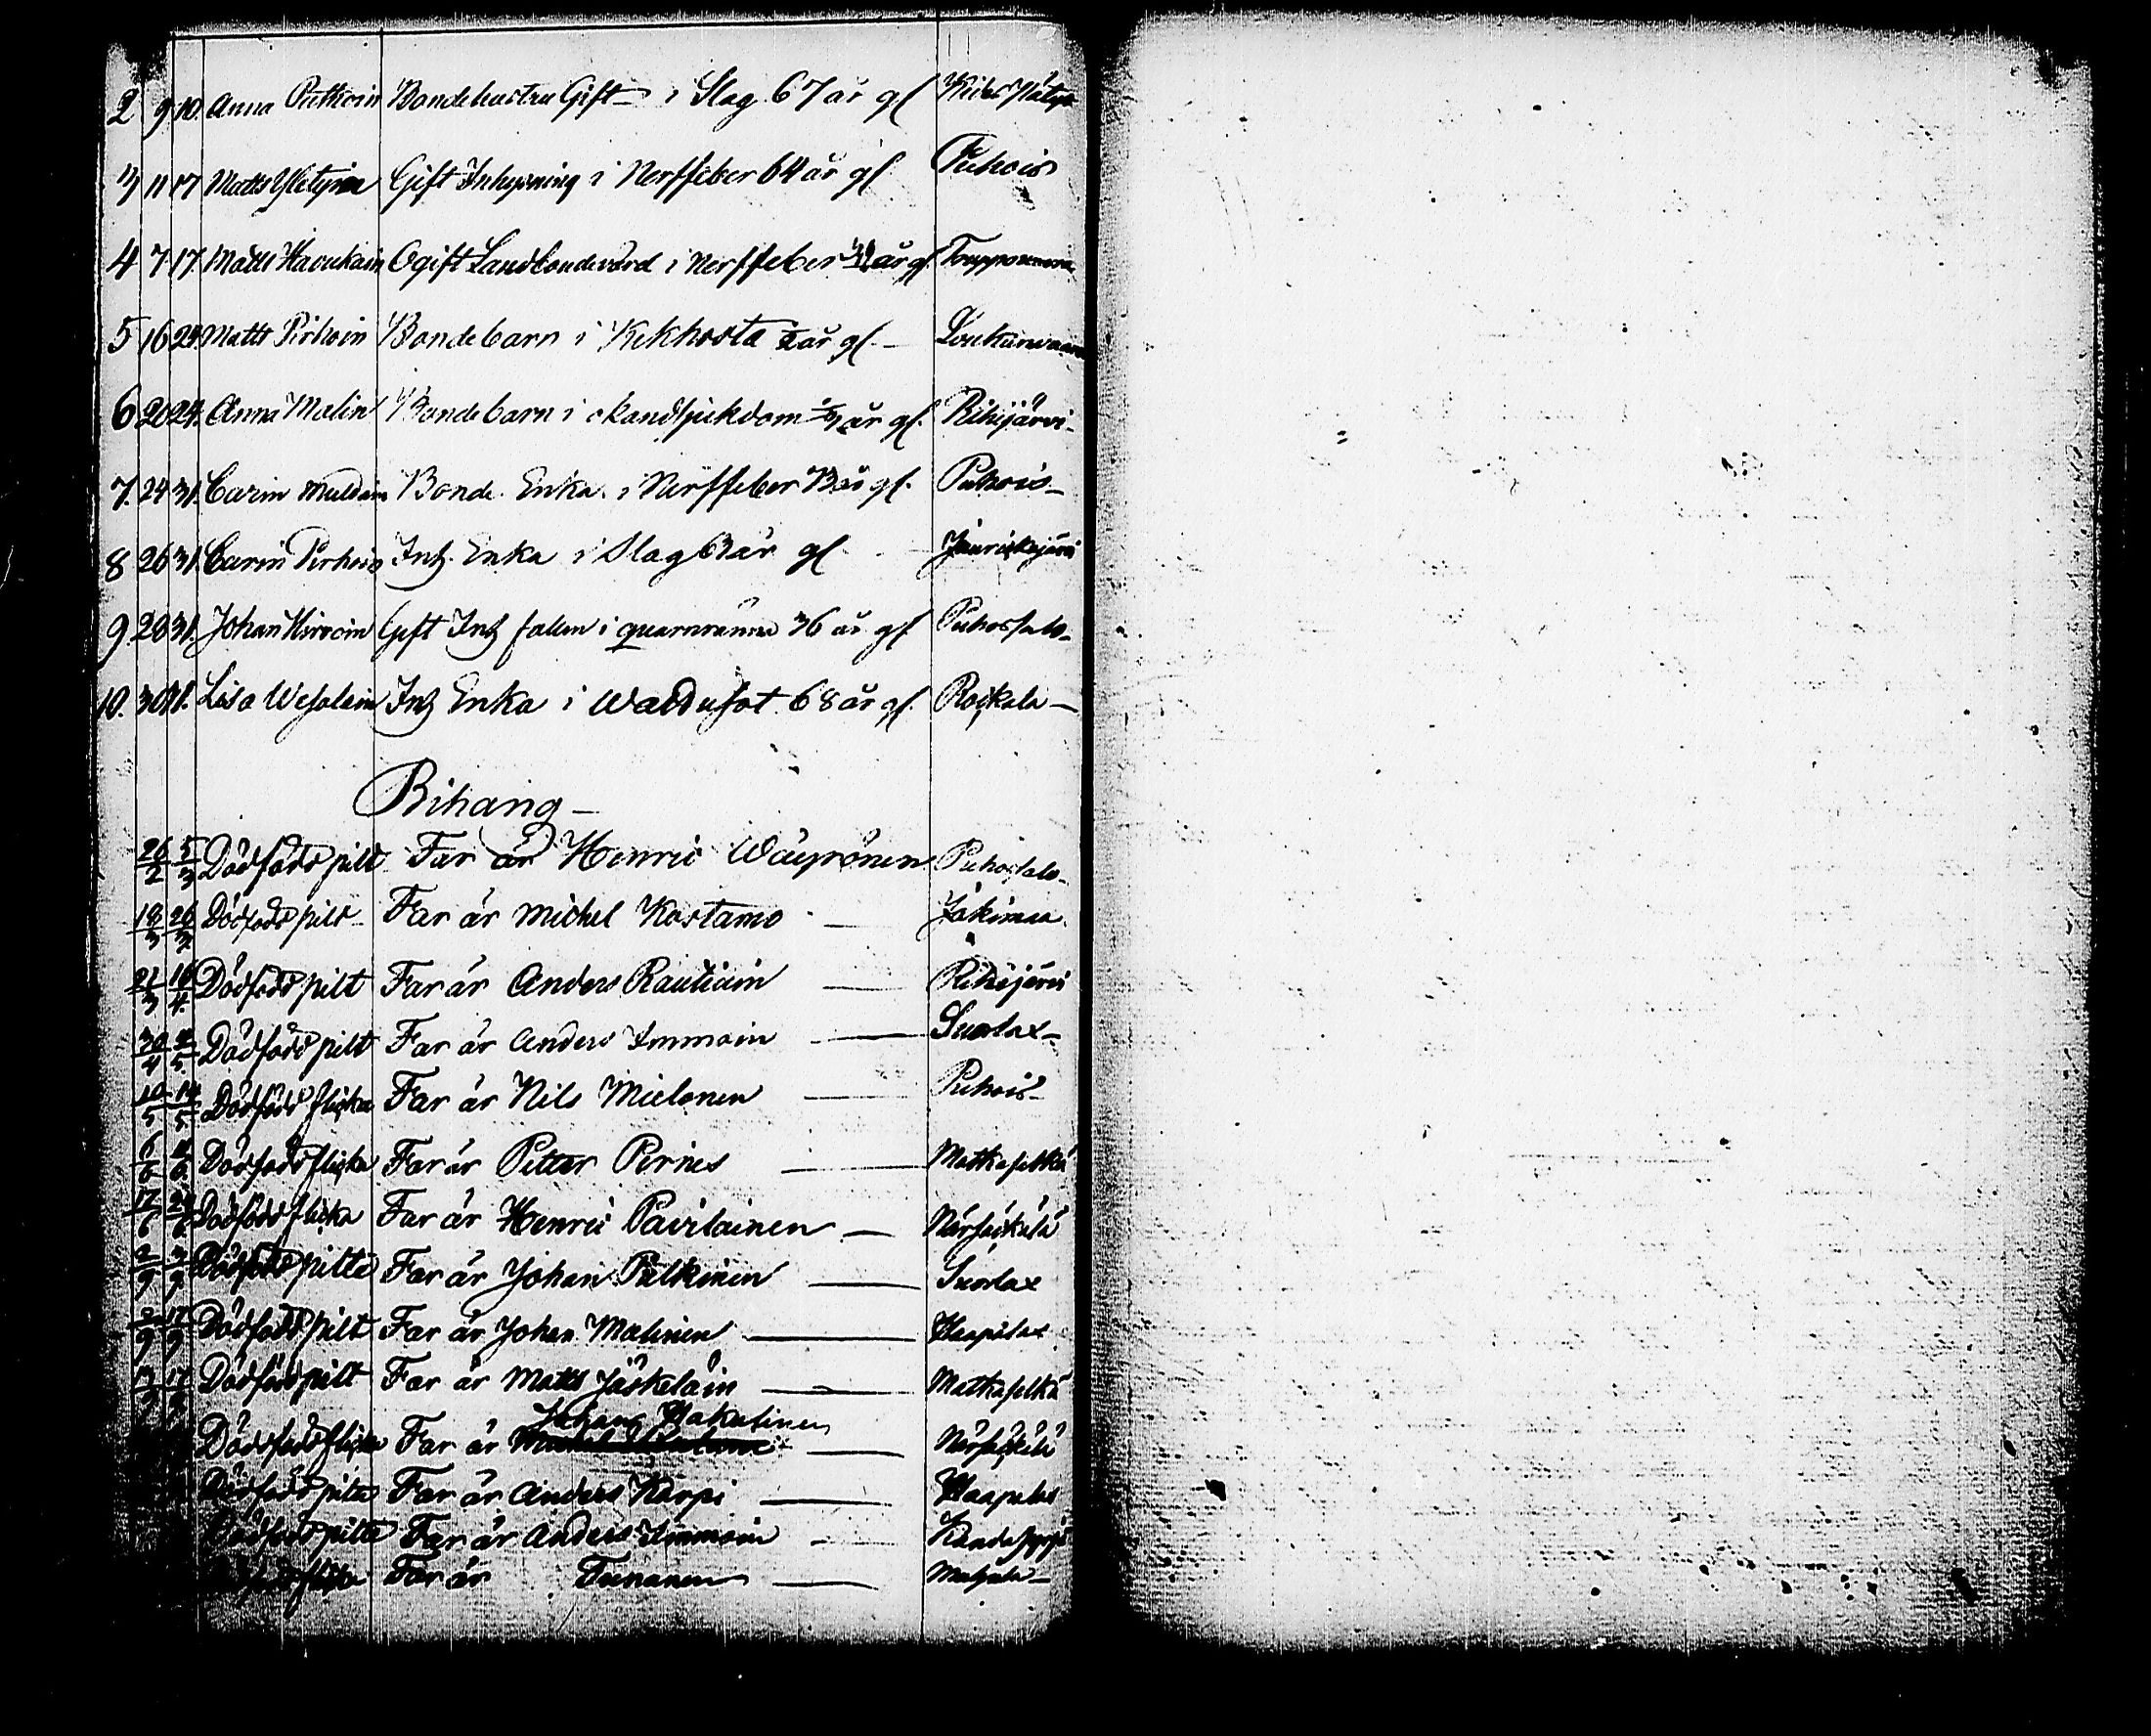 2 9 10. Anna Putkoin Bondehustru Gift i Slag 67 år gl
3 11 17 Matts Gift Inhysning i Nerffeber 64 år gl Puhois
4 7 17. Matts Havukain Ogift Landbondevärd i Nerffeber år gl.
5 16 24. Matts Pirhoin Bondebarn i Kikhosta år gl.
6 20 24. Anna Malin Bondebarn i okand sjukdom år gl. Riihijärvi
7. 24 31. Carin Muldain Bonde Enka i Nerffeber år gl. Puhois
8 26 31. Carin Pirhoin Inh. Enka i Slag 63 år gl.
9. 28 31. Johan Hirvoin Gift Inh fallen i quarnränna 36 år gl Puhossalo
10. 30 31. Lisa Wesalain Inh Enka i Waldusot 68 år gl. Rockala
Bihang
26/2 5/3 Dödfödd pilt Far är Henric Wäyrönen Puhossalo
18/3 26/3 Dödfödd pilt Far är Michel Kostamo Jakimaa
21/3 16/4. Dödfödd pilt Far är Anders Rautiain Riihijärvi
30/4 2/5. Dödfödd pilt Far är Anders Immoin Suorlax
10/5 14/5 Dödfödd flicka Far är Nils Mielonen Puhois
6/6 Dödfödd flicka Far är Petter Pernes Matkaselkä
12/6 Dödfödd flicka Far är Henric Pavilainen Närsäckälä
2/9 3/9 Dödfödd pilt Far är Johan Pulkinen Suorlax
9 17/9 Dödfödd pilt Far är Johan Malinen Haapalax
17 Dödfödd pilt Far är Matts Jäskeläin Matkaselkä
Johan Hakulinen
Dödfödd flicka Far är Närsäckälä
Dödfödd pilt Far är Anders Karpi
Dödfödd pilt Far är Anders Immoin
flicka Far är Tuunanen